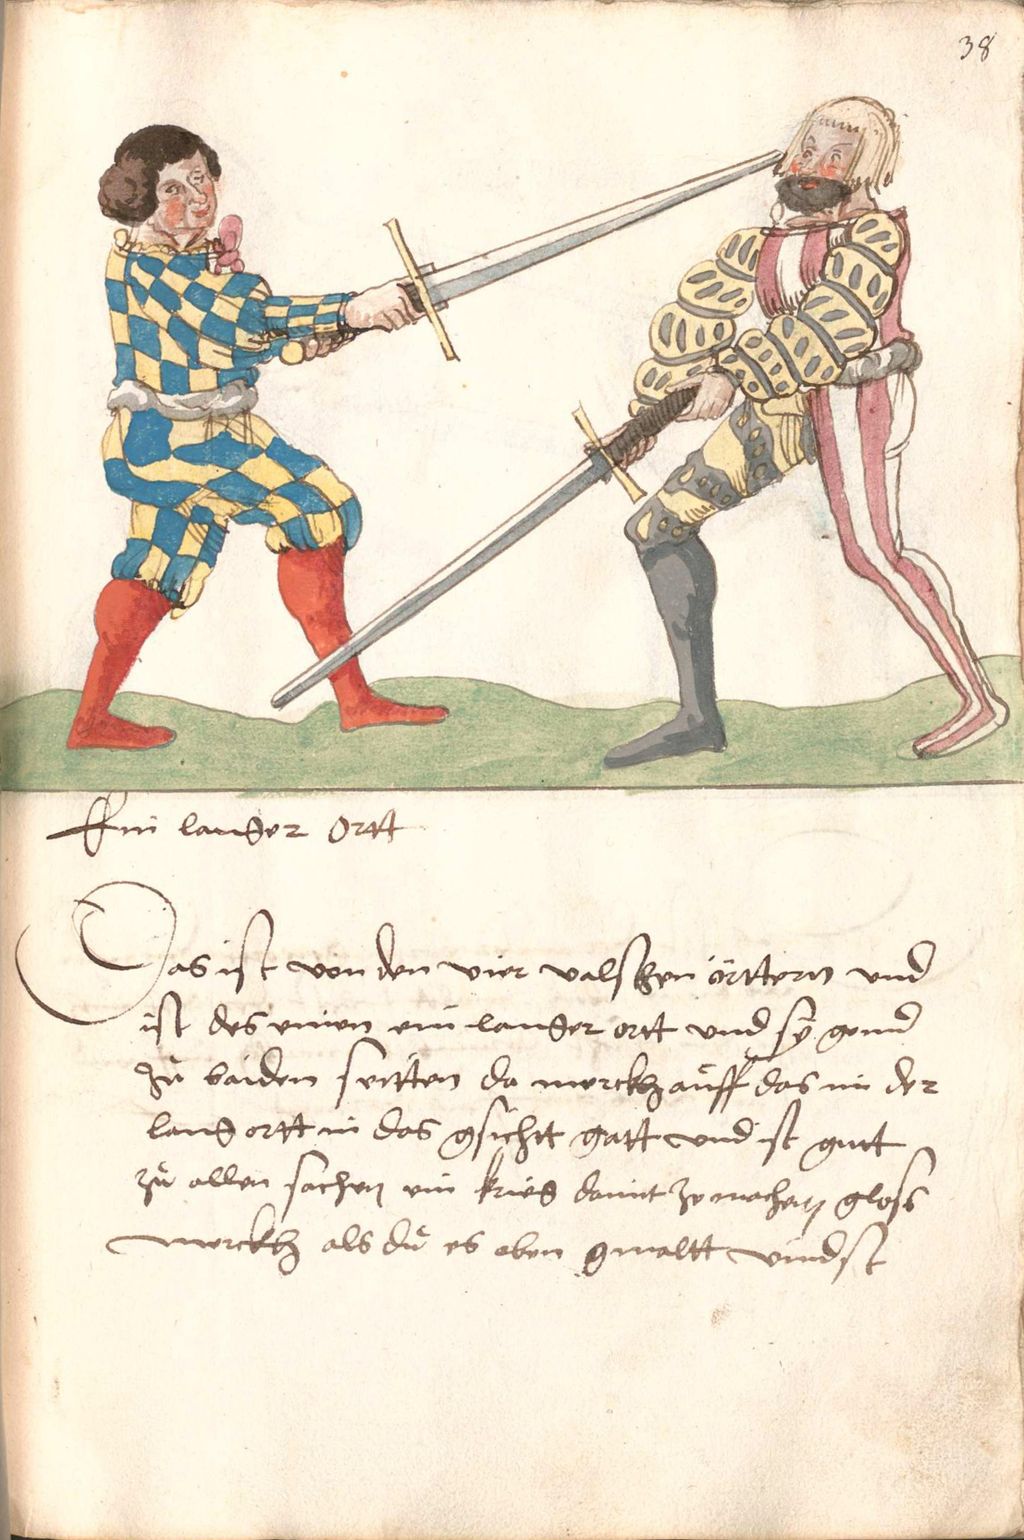 38
Ein langer Ortt
Das ist von den vier valschen örttern und
ist des einen ein langer ortt und sy gend
zů baiden seitten da merckh auff das im der
lang ortt in das gsichtt gatt und ist gutt
zů allen sachen ein krieg damit ze machen gloss
merckh als dů es oben gmaltt vindst